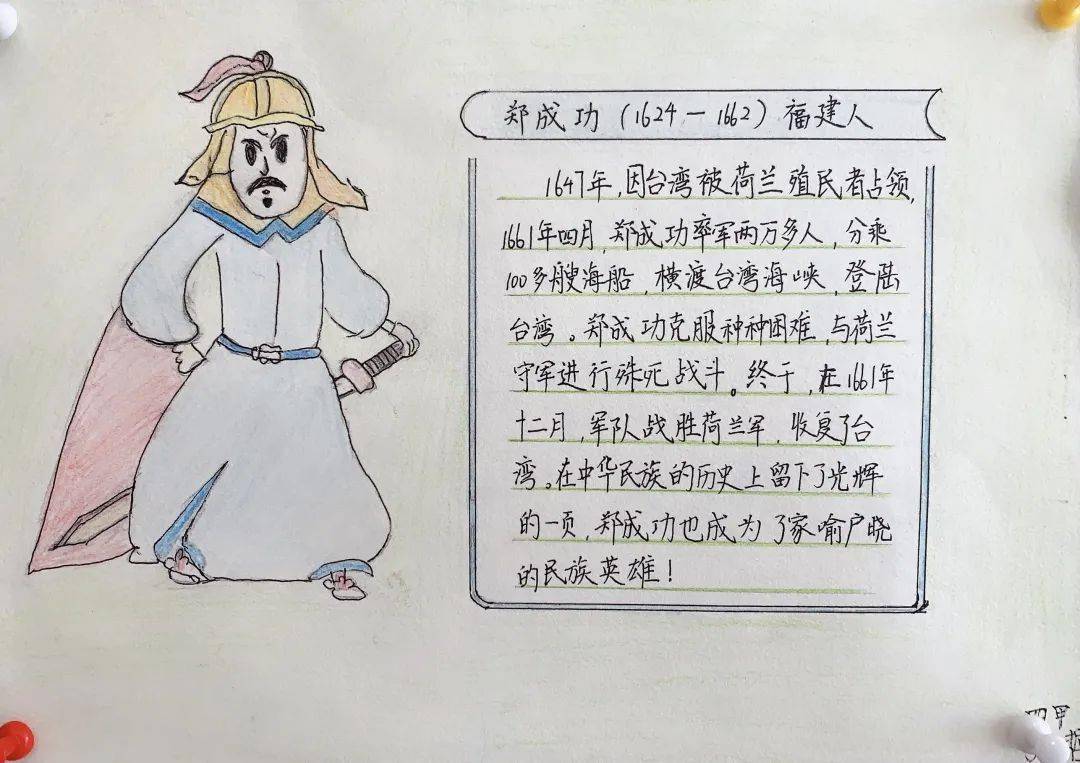 郑成功（1624－1662）福建人
1647年，因台湾被荷兰殖民者占领，
1661年四月，郑成功率军两万多人，分乘
100多艘海船，横渡台湾海峡，登陆
台湾。郑成功克服种种困难，与荷兰
守军进行殊死战斗。终于，在1661年
十二月，军队战胜荷兰军，收复了台
湾。在中华民族的历史上留下了光辉
的一页，郑成功也成为了家喻户晓
的民族英雄！
四甲